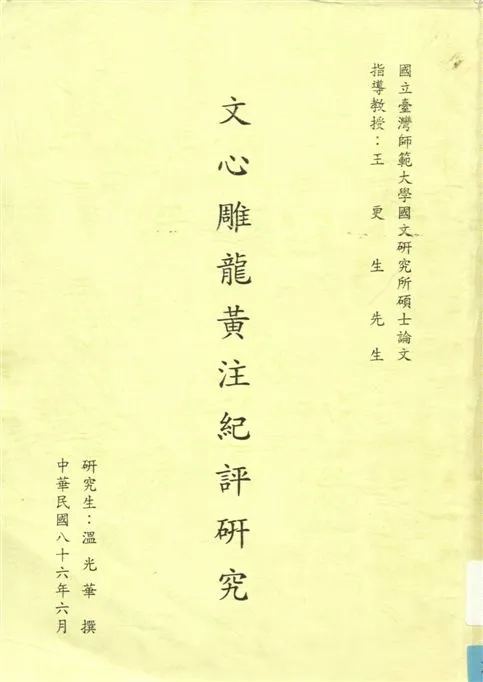 國立臺灣師範大學國文研究所碩士論文
指導教授：王更生先生
文心雕龍黃注紀評研究
研究生：溫光華撰
中華民國八十六年六月